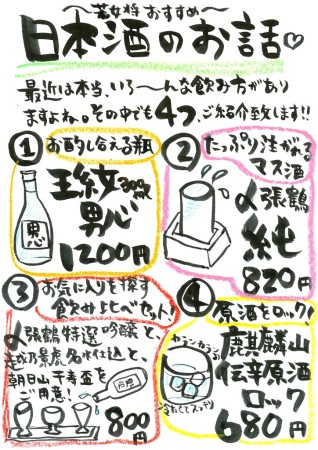 〜若女将おすすめ〜
日本酒のお話♡
最近は本当、いろ〜んな飲み方があり
ますよね。その中でも4つ、ご紹介致します!!
① お酌しなえる瓶
玉紋 300ml
男心
1200円
男心
② たっぷり注がれる
マス酒
〆張鶴
純
820円
③ お気に入りを探す
飲みくらべセット!
〆張鶴特選吟醸と、
越乃景虎名水仕込と、
朝日山千寿盃を
ご用意!
800円
④ 原酒をロック!
カランカラン
冷たくてスッキリ
麒麟山
伝辛原酒
ロック
680円